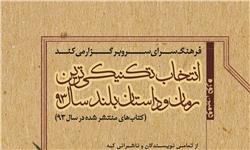 فرهنگ‌سرای سرو برگزار می‌کند
انتخاب تکنیکی‌ترین
رمان و داستان بلند سال ۹۳
(کتاب‌های منتشر شده در سال ۹۳)
از تمامی نویسندگان و ناشرانی که